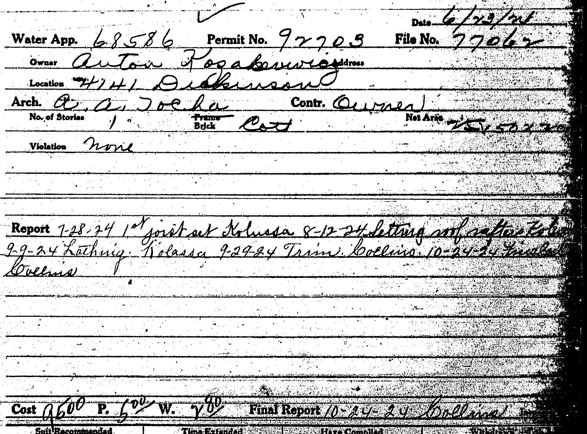 Date 6/23/24
Water App. 68586 Permit No. 92703 File No. 77062
Owner Anton Address
Location 4141 Dickinson
Arch. A. A. Tocha Contr. Owner
No. of Stories 1 Frame Brick Cott Net Area
Violation None
Report 7-28-24 1st joist set Kolassa 8-12-24 Setting roof rafters
9-9-24 Lathing. Kolassa 9-29-24 Trim. Collins. 10-24-24
Collins
Cost P. 5.00 W. Final Report 10-24-24 Collins
Suit Recommended Time Extended Have Complied